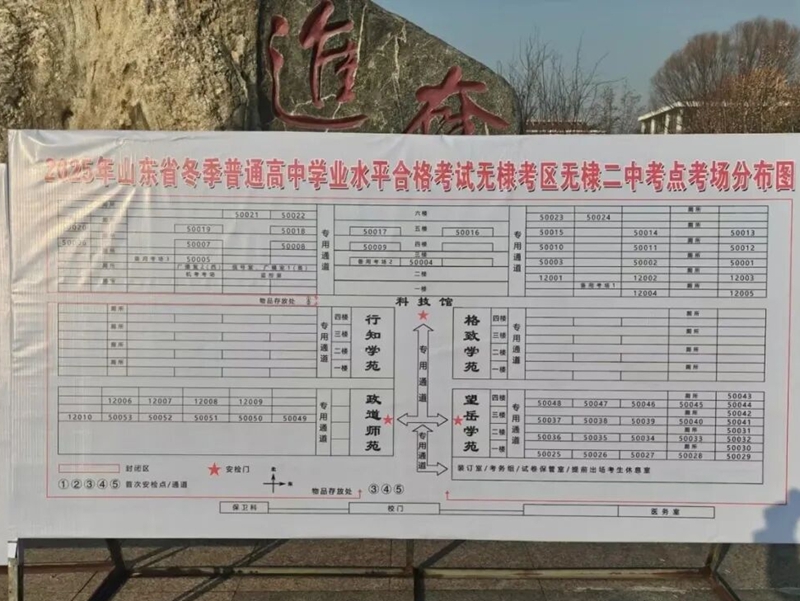 進
2025年山东省冬季普通高中学业水平合格考试无棣考区无棣二中考点考场分布图
50021 50022
六楼
厕所
50023 50024
50019 50018
专用通道
50017 五楼 50016
专用通道
50015 50014 50013
50007 50008
50009 四楼
50010 50011 50012
备用考场3 50005
三楼
备用考场2 50004
50003 50002 50001
二楼
12001 12002 12003
一楼
备用考场1
12004 12005
物品存放处
科技馆
行知学苑
四楼
三楼
二楼
一楼
专用通道
格致学苑
四楼
三楼
二楼
一楼
专用通道
专用通道
12006 12007 12008 12009
12010 50053 50052 50051 50050 50049
专用通道
政道师苑
望岳学苑
四楼
三楼
二楼
一楼
专用通道
厕所 50043
50048 50047 50046 50045 50044
厕所 50042
50037 50038 50039 50040 50041
厕所 50031
50036 50035 50034 50033 50032
厕所 50030
50025 50026 50027 50028 50029
专用通道
装订室/考务组/试卷保管室/提前出场考生休息室
封闭区
安检门
北
①②③④⑤ 首次安检点/通道
物品存放处 ③④⑤
保卫科
校门
医务室